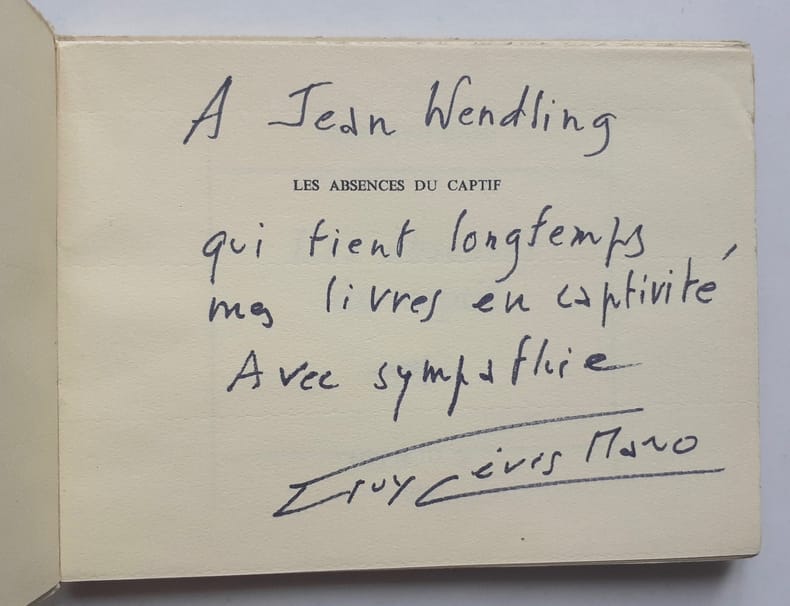 A Jean Wendling
LES ABSENCES DU CAPTIF
qui tient longtemps
mes livres en captivité
Avec sympathie
Guy Lévis Mano